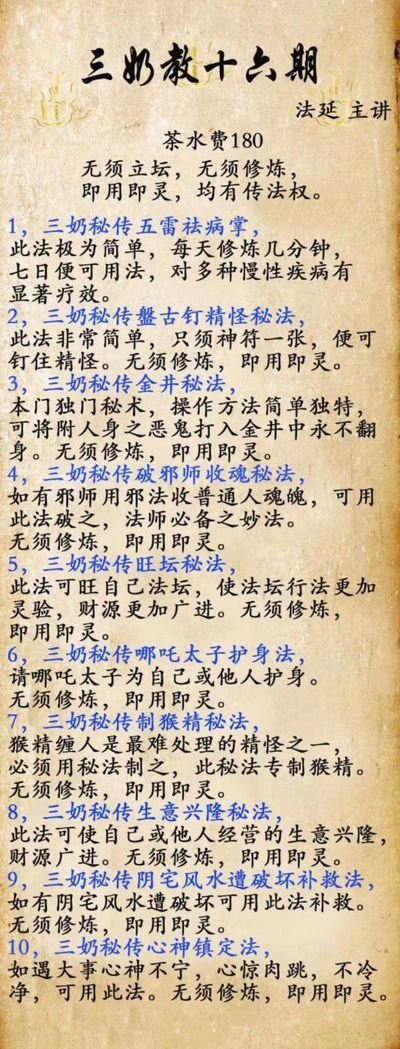 三奶教十六期
法延 主讲
茶水费180
无须立坛，无须修炼，
即用即灵，均有传法权。
1，三奶秘传五雷祛病掌，
此法极为简单，每天修炼几分钟，
七日便可用法，对多种慢性疾病有
显著疗效。
2，三奶秘传盤古钉精怪秘法，
此法非常简单，只须神符一张，便可
钉住精怪。无须修炼，即用即灵。
3，三奶秘传金井秘法，
本门独门秘术，操作方法简单独特，
可将附人身之恶鬼打入金井中永不翻
身。无须修炼，即用即灵。
4，三奶秘传破邪师收魂秘法，
如有邪师用邪法收普通人魂魄，可用
此法破之，法师必备之妙法。
无须修炼，即用即灵。
5，三奶秘传旺坛秘法，
此法可旺自己法坛，使法坛行法更加
灵验，财源更加广进。无须修炼，
即用即灵。
6，三奶秘传哪吒太子护身法，
请哪吒太子为自己或他人护身。
无须修炼，即用即灵。
7，三奶秘传制猴精秘法，
猴精缠人是最难处理的精怪之一，
必须用秘法制之，此秘法专制猴精。
无须修炼，即用即灵。
8，三奶秘传生意兴隆秘法，
此法可使自己或他人经营的生意兴隆，
财源广进。无须修炼，即用即灵。
9，三奶秘传阴宅风水遭破坏补救法，
如有阴宅风水遭破坏可用此法补救。
无须修炼，即用即灵。
10，三奶秘传心神镇定法，
如遇大事心神不宁，心惊肉跳，不冷
净，可用此法。无须修炼，即用即灵。